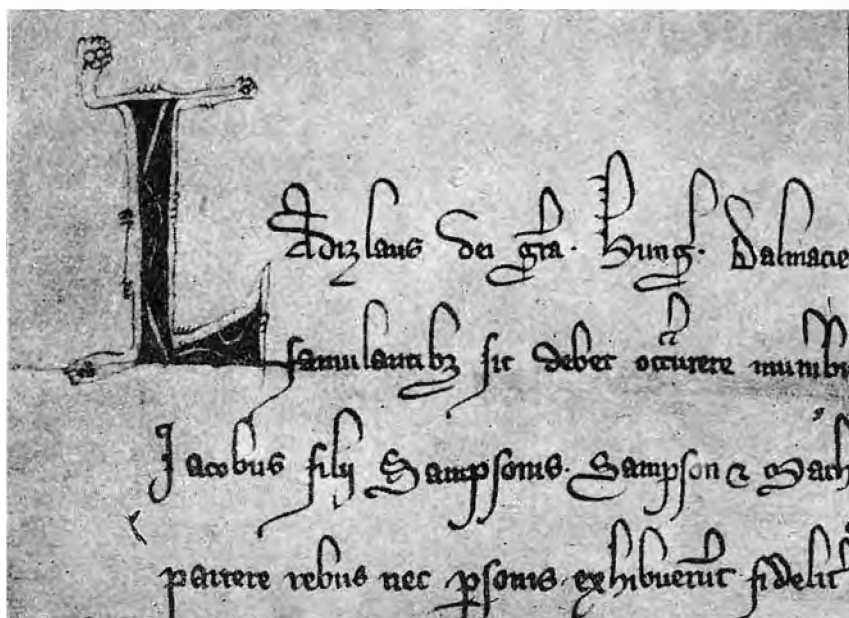 Ladizlaus dei gr̃a. Hung̃. Dalmacie
famulantibꝫ sic debet occ̃urrere munibu
Jacobus filij Sampsonis. Sampson ⁊ Mach
parcere rebus nec ꝑsonis. exhibuerũt fidelit᷑